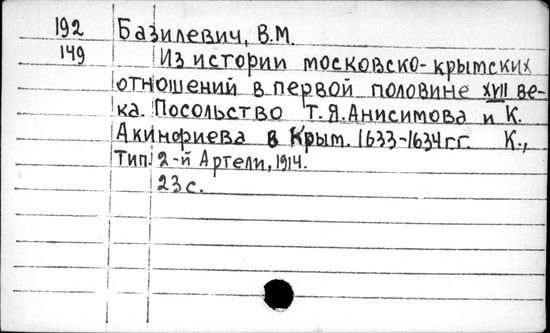 192 Базилевич, В.М.
149 Из истории московско-крымских
отношений в первой половине XVII ве-
ка. Посольство Т.Я.Анисимова и К.
Акинфиева в Крым. 1633-1634гг. К.,
Тип. 2-й Артели, 1914.
23 с.